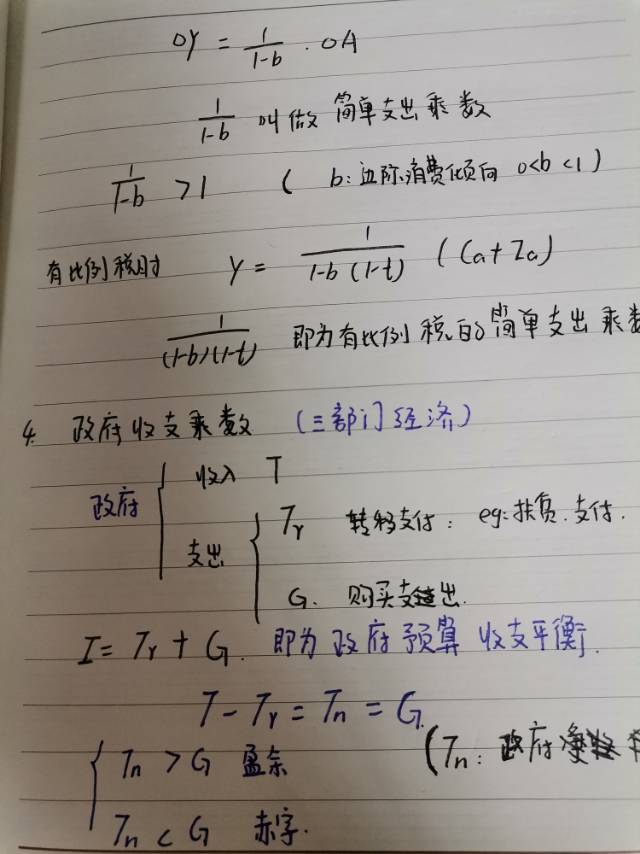 OY = 1/(1-b) · OA
1/(1-b) 叫做 简单支出乘数
1/(1-b) > 1 ( b: 边际消费倾向 0<b<1)
有比例税时 Y = 1/(1-b(1-t)) (Ca + Ia)
1/((1-b)(1-t)) 即为有比例税的简单支出乘数
4. 政府收支乘数 (三部门经济)
政府 { 收入 T
支出 { Tr 转移支付: eg: 扶贫. 支付.
G. 购买支出.
I = Tr + G. 即为政府预算收支平衡.
T - Tr = Tn = G.
{ Tn > G 盈余 (Tn: 政府
Tn < G 赤字.